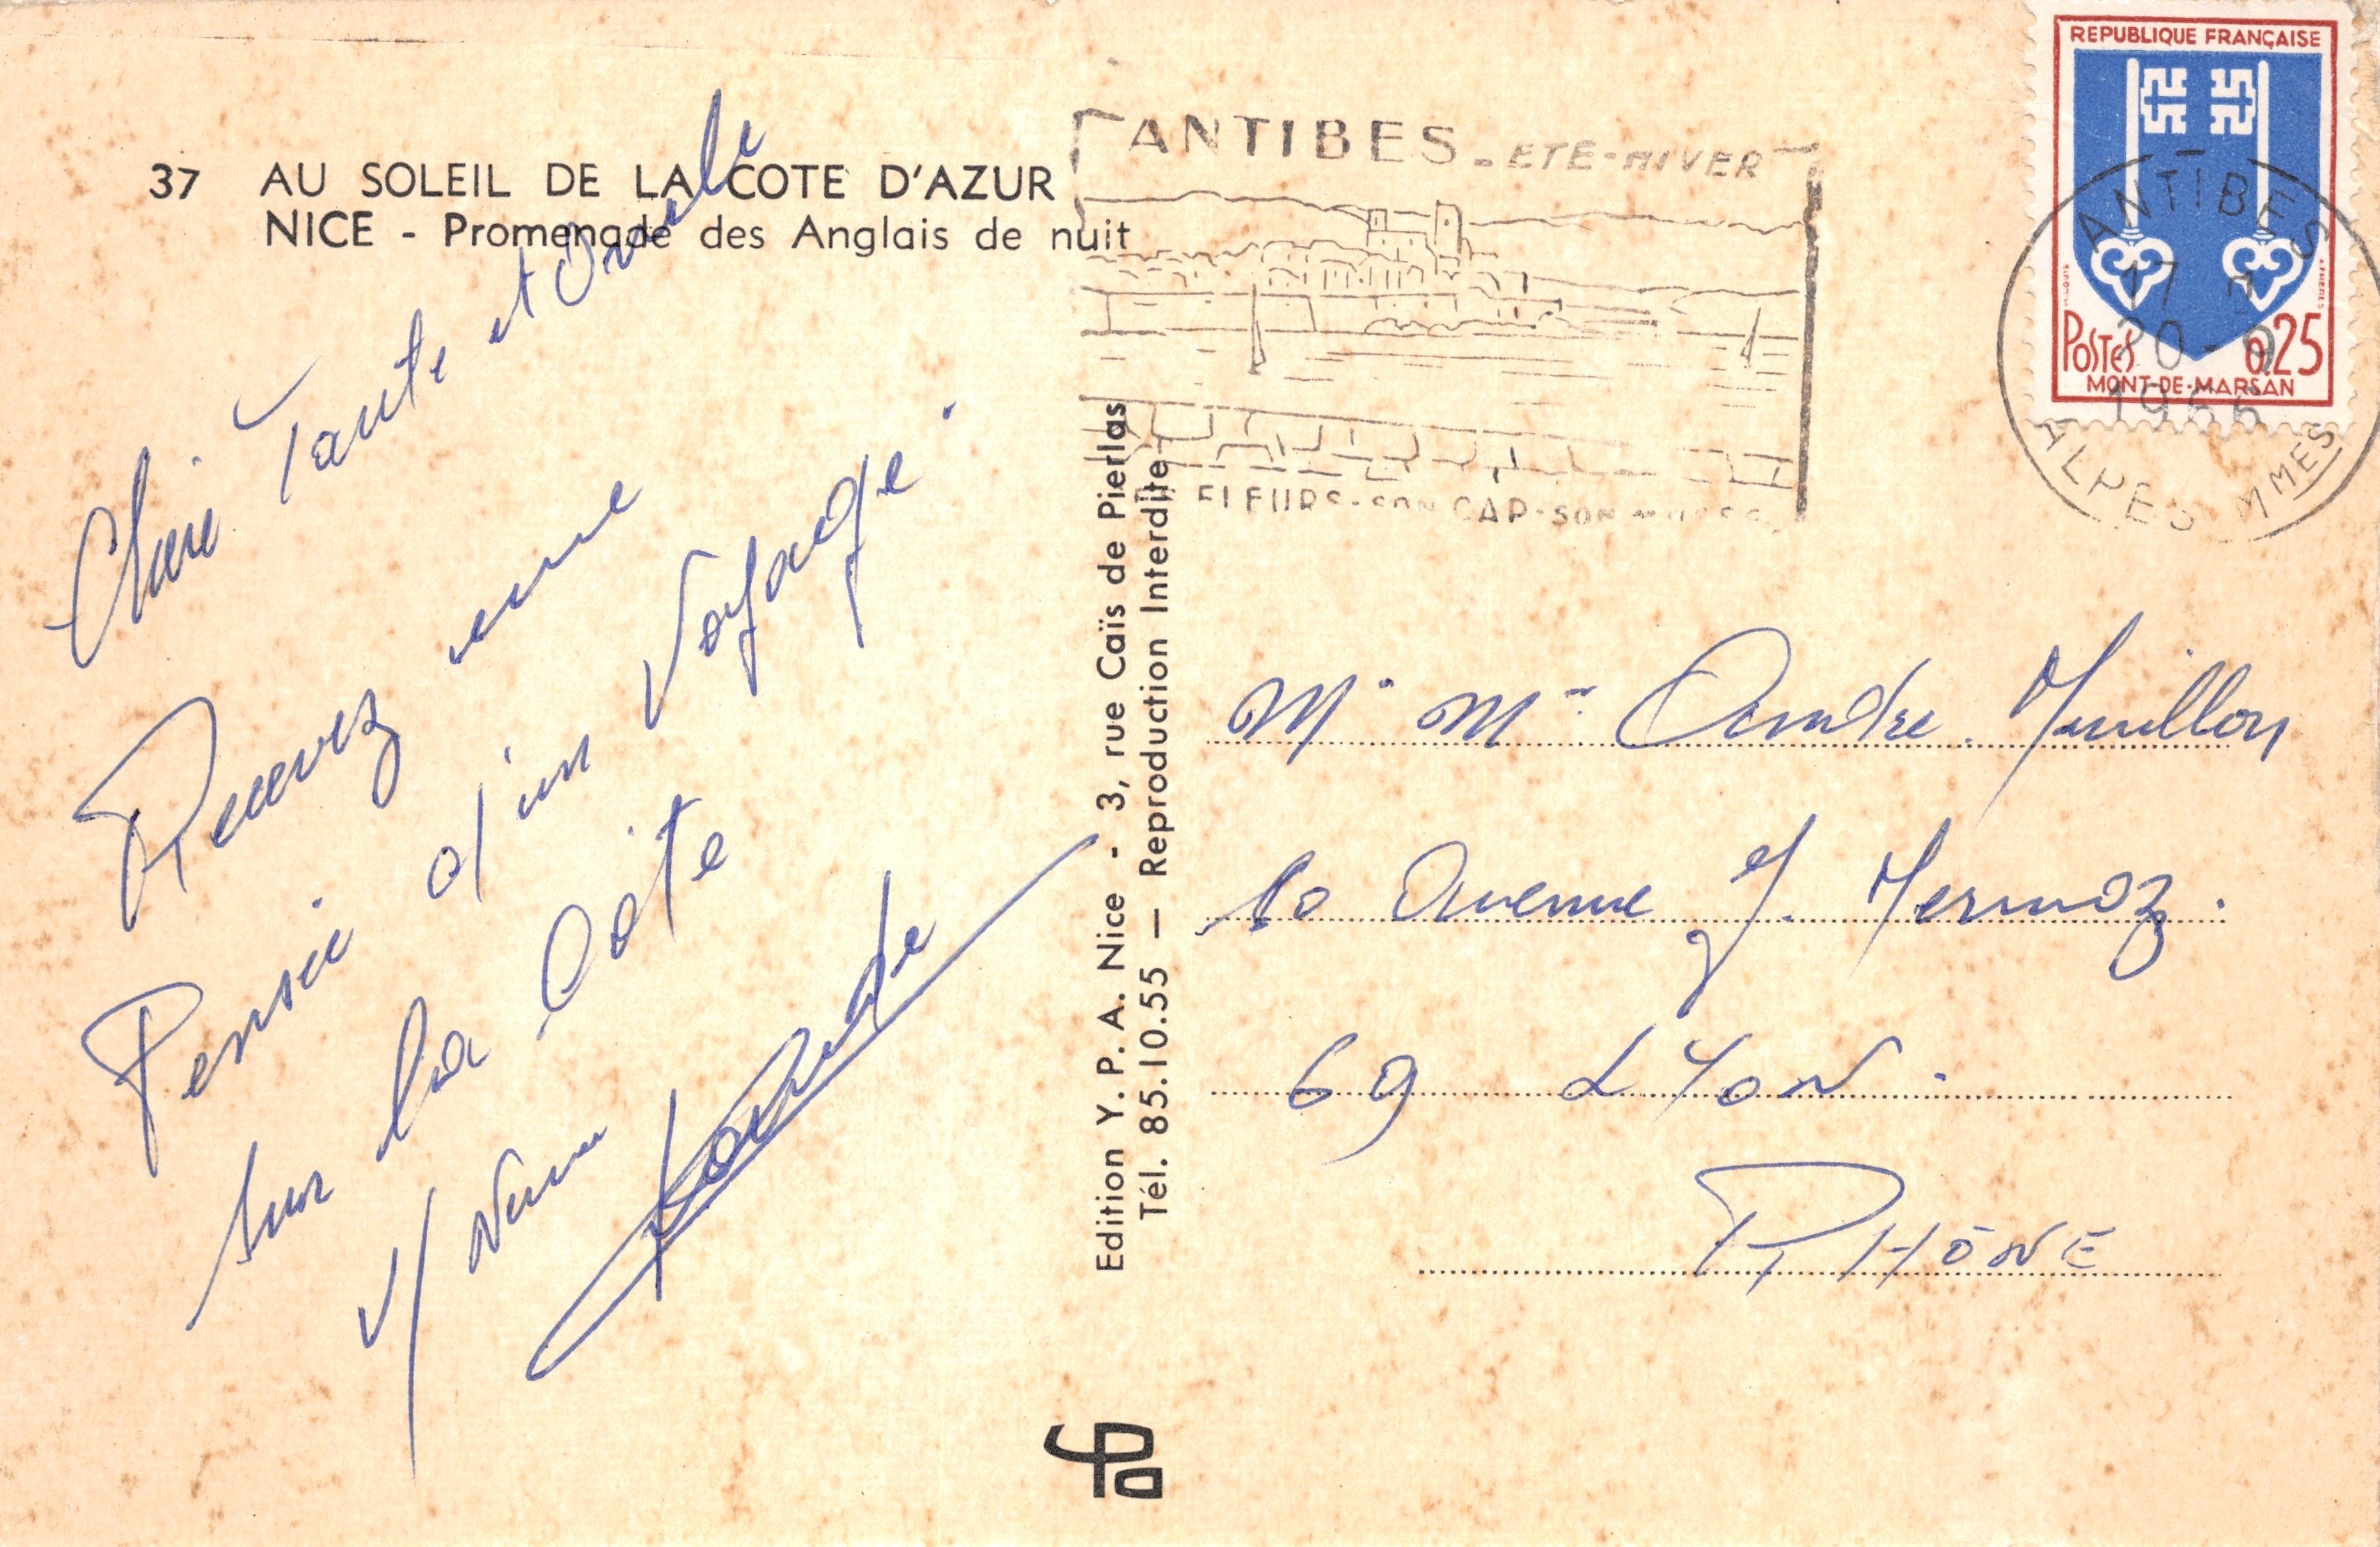 37 AU SOLEIL DE LA COTE D'AZUR
NICE - Promenade des Anglais de nuit
Tante et Oncle
Recevez une
Pensée d'un Voyage.
sur la Côte
Edition Y. P. A. Nice - 3, rue Caïs de Pierlas
Tél. 85.10.55 — Reproduction Interdite
ANTIBES - ETE-HIVER
FLEURS - SON CAP - SON
REPUBLIQUE FRANÇAISE
POSTES 0,25
MONT-DE-MARSAN
ANTIBES
17
20 - 9
1966
ALPES MMES
Mr Mme André
Avenue J. Mermoz.
69 LYON.
RHÔNE
ypa